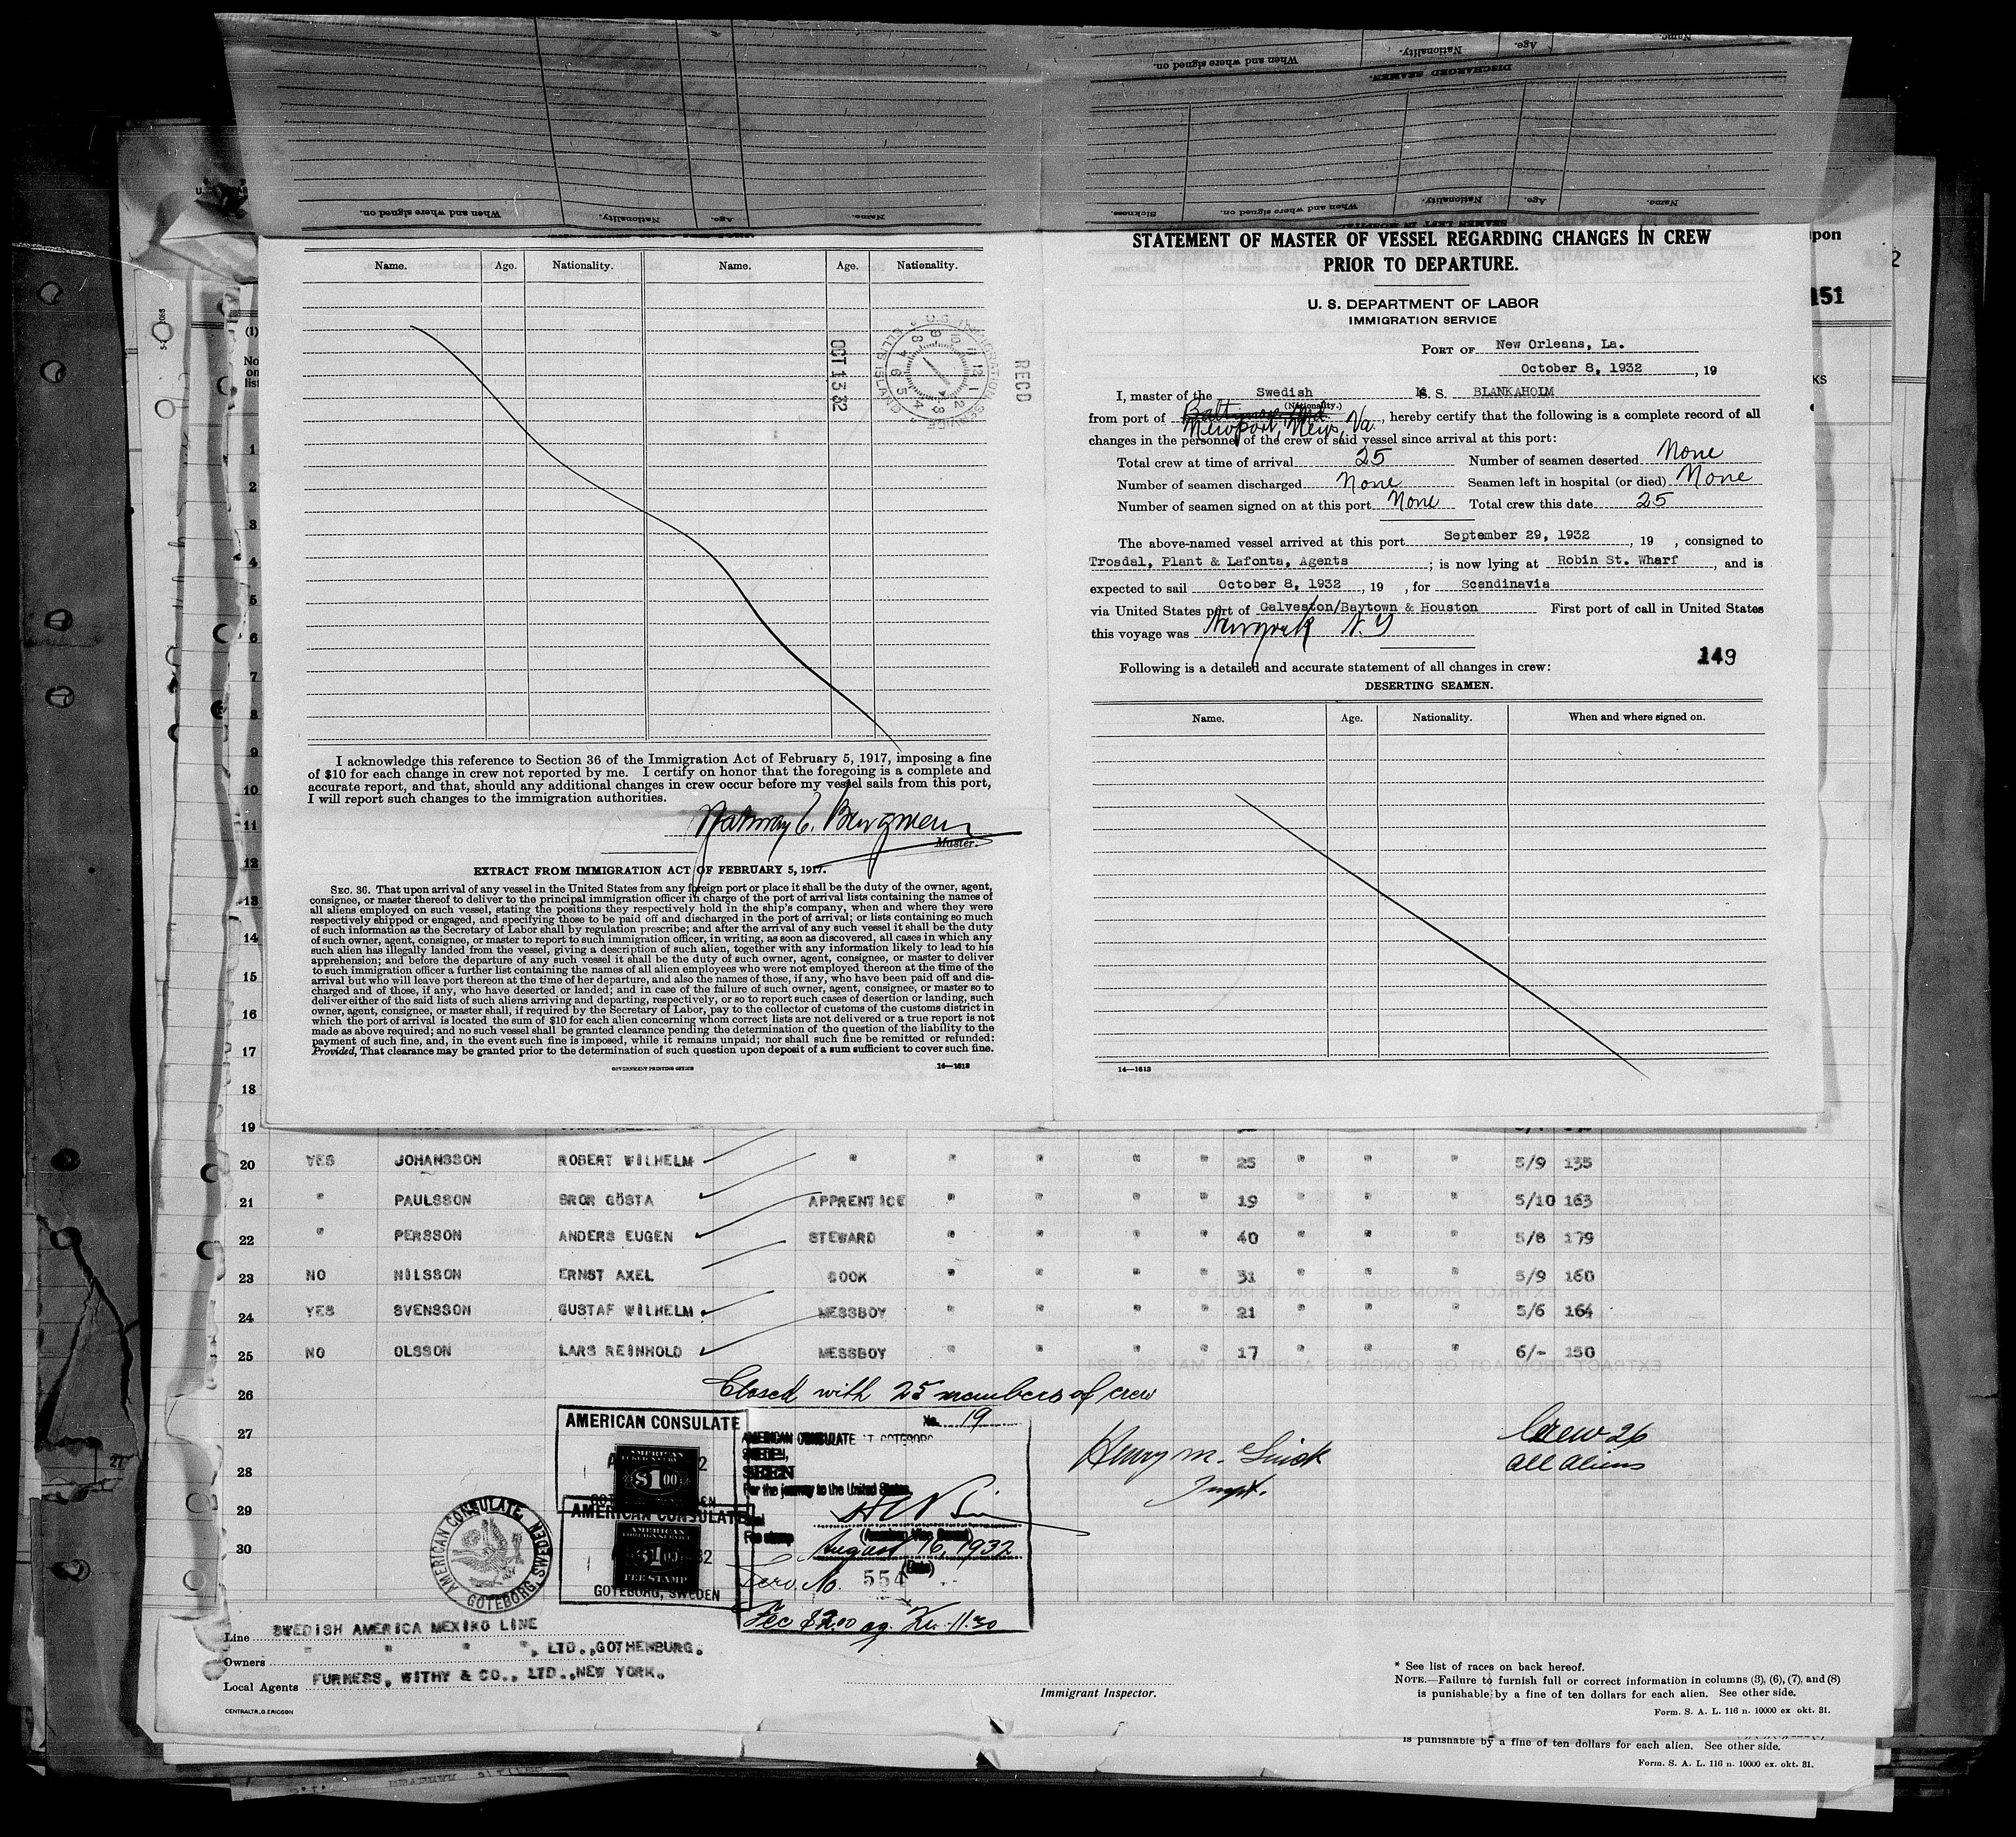 Name. Age. Nationality. When and where signed on.
DISCHARGED SEAMEN.
When and where signed on. Nationality. Age. Name.
Sickness. When and where signed on. Nationality. Age. Name.
SEAMEN LEFT IN HOSPITAL
Name. Age. Nationality. Name. Age. Nationality.
U. S. IMMIGRATION SERVICE ELLIS ISLAND
OCT 13 32
REC'D
I acknowledge this reference to Section 36 of the Immigration Act of February 5, 1917, imposing a fine
of $10 for each change in crew not reported by me. I certify on honor that the foregoing is a complete and
accurate report, and that, should any additional changes in crew occur before my vessel sails from this port,
I will report such changes to the immigration authorities.
Master.
EXTRACT FROM IMMIGRATION ACT OF FEBRUARY 5, 1917.
SEC. 36. That upon arrival of any vessel in the United States from any foreign port or place it shall be the duty of the owner, agent,
consignee, or master thereof to deliver to the principal immigration officer in charge of the port of arrival lists containing the names of
all aliens employed on such vessel, stating the positions they respectively hold in the ship's company, when and where they were
respectively shipped or engaged, and specifying those to be paid off and discharged in the port of arrival; or lists containing so much
of such information as the Secretary of Labor shall by regulation prescribe; and after the arrival of any such vessel it shall be the duty
of such owner, agent, consignee, or master to report to such immigration officer, in writing, as soon as discovered, all cases in which any
such alien has illegally landed from the vessel, giving a description of such alien, together with any information likely to lead to his
apprehension; and before the departure of any such vessel it shall be the duty of such owner, agent, consignee, or master to deliver
to such immigration officer a further list containing the names of all alien employees who were not employed thereon at the time of the
arrival but who will leave port thereon at the time of her departure, and also the names of those, if any, who have been paid off and dis-
charged and of those, if any, who have deserted or landed; and in case of the failure of such owner, agent, consignee, or master so to
deliver either of the said lists of such aliens arriving and departing, respectively, or so to report such cases of desertion or landing, such
owner, agent, consignee, or master shall, if required by the Secretary of Labor, pay to the collector of customs of the customs district in
which the port of arrival is located the sum of $10 for each alien concerning whom correct lists are not delivered or a true report is not
made as above required; and no such vessel shall be granted clearance pending the determination of the question of the liability to the
payment of such fine, and, in the event such fine is imposed, while it remains unpaid; nor shall such fine be remitted or refunded:
Provided, That clearance may be granted prior to the determination of such question upon deposit of a sum sufficient to cover such fine.
GOVERNMENT PRINTING OFFICE 14—1613
STATEMENT OF MASTER OF VESSEL REGARDING CHANGES IN CREW
PRIOR TO DEPARTURE.
U. S. DEPARTMENT OF LABOR
IMMIGRATION SERVICE
PORT OF New Orleans, La.
October 8, 1932, 19
I, master of the Swedish M S. S. BLANKAHOLM
(Nationality.)
from port of Baltimore, Md. Newport News, Va., hereby certify that the following is a complete record of all
changes in the personnel of the crew of said vessel since arrival at this port:
Total crew at time of arrival 25 Number of seamen deserted None
Number of seamen discharged None Seamen left in hospital (or died) None
Number of seamen signed on at this port None Total crew this date 25
The above-named vessel arrived at this port September 29, 1932, 19 , consigned to
Trosdal, Plant & Lafonta, Agents; is now lying at Robin St. Wharf, and is
expected to sail October 8, 1932, 19 , for Scandinavia
via United States port of Galveston/Baytown & Houston First port of call in United States
this voyage was Newyork N.Y
149
Following is a detailed and accurate statement of all changes in crew:
DESERTING SEAMEN.
Name. Age. Nationality. When and where signed on.
14—1613
upon
151
KS
2
(1)
No.
on
list
1
2
3
4
5
6
7
8
9
10
11
12
13
14
15
16
17
18
19
20 YES JOHANSSON ROBERT WILHELM " " " " " 25 " " " 5/9 135
21 " PAULSSON BROR GÖSTA APPRENTICE " " " " 19 " " " 5/10 163
22 " PERSSON ANDERS EUGEN STEWARD " " " " 40 " " " 5/8 179
23 NO NILSSON ERNST AXEL COOK " " " " 31 " " " 5/9 160
24 YES SVENSSON GUSTAF WILHELM MESSBOY " " " " 21 " " " 5/6 164
25 NO OLSSON LARS REINHOLD MESSBOY " " " " 17 " " " 6/- 150
26 Closed with 25 members of crew
27
28
29
30
Crew 26
All Aliens
Henry M.
Inspt.
AMERICAN CONSULATE
AMERICAN
$1.00
AMERICAN CONSULATE
AMERICAN
FOREIGN SERVICE
$1.00
FEE STAMP
GOTEBORG, SWEDEN
AMERICAN CONSULATE, GOTEBORG, SWEDEN.
No. 19
AMERICAN CONSULATE AT GOTEBORG
SWEDEN,
SEEN
For the journey to the United States,
Fee stamp
August 16, 1932
(Date)
Serv. No. 554
Fee $2.00 eq. Kr. 11.30
Line SWEDISH AMERICA MEXIKO LINE
Owners " " " ", LTD., GOTHENBURG.
Local Agents FURNESS, WITHY & CO., LTD., NEW YORK.
CENTRALTR. G. ERICSON
Immigrant Inspector.
* See list of races on back hereof.
NOTE.—Failure to furnish full or correct information in columns (3), (6), (7), and (8)
is punishable by a fine of ten dollars for each alien. See other side.
Form. S. A. L. 116 n. 10000 ex okt. 31.
is punishable by a fine of ten dollars for each alien. See other side.
Form. S. A. L. 116 n. 10000 ex. okt. 31.